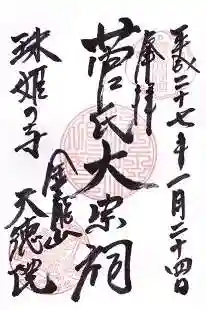 平成二十七年一月二十四日
奉拝
菅氏大宗祠
珠姫の寺
金龍山
天徳院